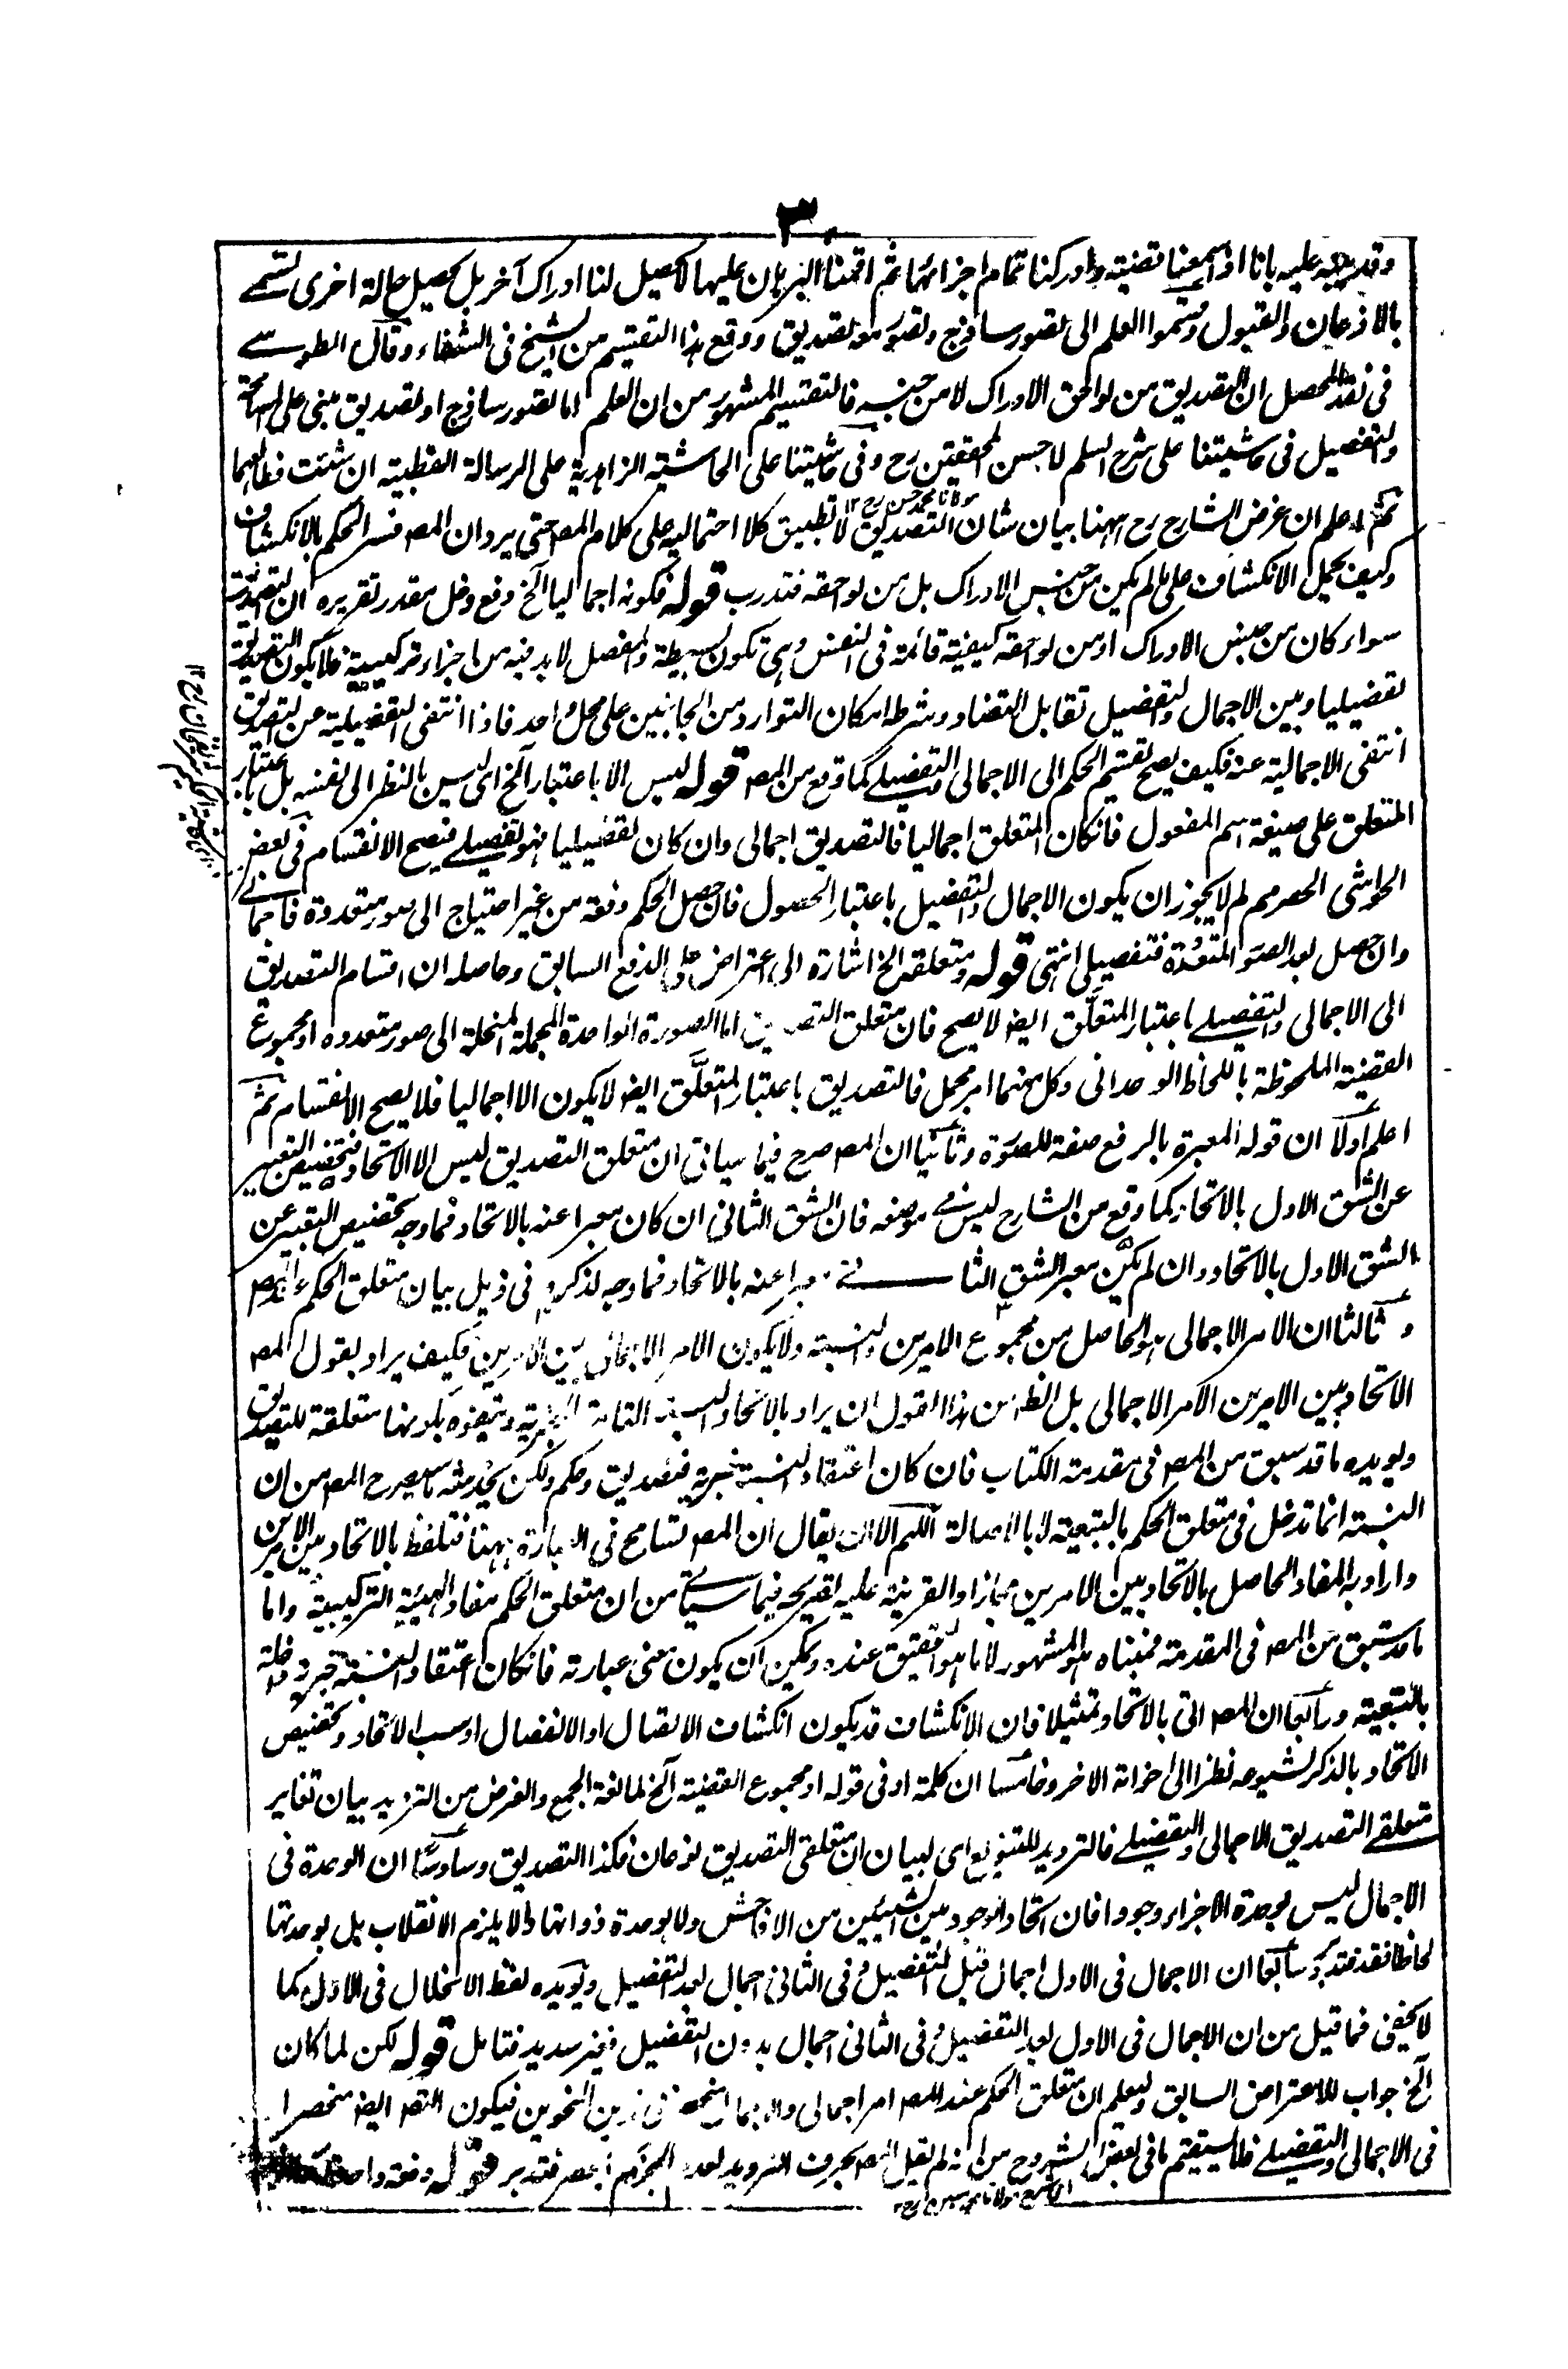 ٣
وقد يوجه عليه بانا اذا سمعنا قضية وادركنا تمام اجزائها ثم اقمنا البرهان عليها لا يحصل لنا ادراك آخر بل يحصل حالة اخرى تسمى
بالاذعان والقبول وقسموا العلم الى تصور ساذج وتصور معه تصديق ووقع هذا التقسيم من الشيخ فى الشفاء وقال الطوسى
فى نقد المحصل ان التصديق من لواحق الادراك لا من جنسه فالتقسيم المشهور من ان العلم اما تصور ساذج او تصديق مبنى على المسامحة
والتفصيل فى حاشيتنا على شرح السلم لاحسن المحققين رح وفى حاشيتنا على الحاشية الزاهدية على الرسالة القطبية ان شئت فطالعهما
مولانا محمد حسن رح ١٢
ثم اعلم ان غرض الشارح رح ههنا بيان شان التصديق لا تطبيق كلا احتماليه على كلام المصـ حتى يرد ان المصـ فسر الحكم بالانكشاف
وكيف يحمل الانكشاف على ما لم يكن من جنس الادراك بل من لواحقه فتدرب قوله فكونه اجماليا آلخ دفع دخل مقدر تقريره ان التصديق
سواء كان من جنس الادراك او من لواحقه كيفية قائمة فى النفس وهى تكون بسيطة والمفصل لا بد فيه من اجزاء تركيبية فلا يكون التصديق
تفصيليا وبين الاجمال والتفصيل تقابل التضاد وشرطه امكان التوارد من الجانبين على محل واحد فاذا انتفى التفصيلية عن التصديق
انتفى الاجمالية عنه فكيف يصح تقسيم الحكم الى الاجمالى والتفصيلى كما وقع من المصـ قوله ليس الا باعتبار آلخ اى ليس بالنظر الى نفسه بل باعتبار
المتعلق على صيغة اسم المفعول فانكان المتعلق اجماليا فالتصديق اجمالى وان كان تفصيليا فهو تفصيلى فيصح الانقسام فى بعض
الحواشى الحصر مم لم لا يجوز ان يكون الاجمال والتفصيل باعتبار الحصول فان حصل الحكم دفعة من غير احتياج الى صور متعددة فاجمالى
وان حصل بعد الصور المتعددة فتفصيلى انتهى قوله ومتعلقه الخ اشارة الى اعتراض على الدفع السابق وحاصله ان اقسام التصديق
الى الاجمالى والتفصيلى باعتبار المتعلق ايضا لا يصح فان متعلق التصديق اما الصورة الواحدة المجملة المنحلة الى صور متعددة او مجموع
القضية الملحوظة باللحاظ الوحدانى وكل منهما امر مجمل فالتصديق باعتبار المتعلَّق ايضا لا يكون الا اجماليا فلا يصح الانقسام ثم
اعلم اولا ان قوله المعبرة بالرفع صفة للصورة وثانيا ان المصـ صرح فيما سياتى ان متعلق التصديق ليس الا الاتحاد فتخصيص التعبير
عن الشق الاول بالاتحاد كما وقع من الشارح ليس فى موضعه فان الشق الثانى ان كان معبرا عنه بالاتحاد فما وجه تخصيص التعبير عن
الشق الاول بالاتحاد وان لم يكن معبر الشق الثانى معبرا عنه بالاتحاد فما وجه لذكره فى ذيل بيان متعلق الحكم عند المصـ
وثالثا ان الامر الاجمالى هو الحاصل من مجموع الامرين والنسبة ولا يكون الامر الاجمالى بين الامرين فكيف يراد بقول المصـ
الاتحاد بين الامرين الامر الاجمالى بل الظـ من هذا القول ان يراد بالاتحاد النسبة التامة الخبرية ويتفوه بكونها متعلقة للتصديق
ويويده ما قد سبق من المصـ فى مقدمة الكتاب فان كان اعتقادا لنسبة خبرية فتصديق وحكم ولكن يخدشه ما سيصرح المصـ من ان
النسبة انما تدخل فى متعلق الحكم بالتبعية لا بالاصالة اللهم الا ان يقال ان المصـ تسامح فى العبارة ههنا فتلفظ بالاتحاد بين الامرين
واراد به المفاد الحاصل بالاتحاد بين الامرين مجازا والقرينة عليه تصريحه فيما سياتى من ان متعلق الحكم مفاد الهيئة التركيبية واما
ما قد سبق من المصـ فى المقدمة فمبناه هو المشهور لا ما هو التحقيق عنده ويمكن ان يكون معنى عبارته فانكان اعتقادا لنسبة خبرية داخلة
بالتبعية ورابعا ان المصـ اتى بالاتحاد تمثيلا فان الانكشاف قد يكون انكشاف الاتصال او الانفصال او سلب الاتحاد وتخصيص
الاتحاد بالذكر لشيوعه نظرا الى اخواته الاخر وخامسا ان كلمة او فى قوله او مجموع القضية آلخ لمانعة الجمع والغرض من الترديد بيان تغاير
متعلقى التصديق الاجمالى والتفصيلى فالترديد للتنويع اى لبيان ان متعلقى التصديق نوعان فكذا التصديق وسادسا ان الوحدة فى
الاجمال ليس بوحدة الاجزاء وجودا فان اتحاد الوجود بين الشيئين من الافاحش ولا بوحدة ذواتها والا يلزم الانقلاب بل بوحدتها
لحاظا فقد فتدبر وسابعا ان الاجمال فى الاول اجمال قبل التفصيل وفى الثانى اجمال بعد التفصيل ويويده لفظ الانحلال فى الاول كما
لا يخفى فما قيل من ان الاجمال فى الاول بعد التفصيل وفى الثانى اجمال بدون التفصيل فغير سديد فتامل قوله لكن لما كان
آلخ جواب للاعتراض السابق وليعلم ان متعلق الحكم عند المصـ امر اجمالى فى نحوين فيكون التصـ ايضا منحصرا
فى الاجمالى والتفصيلى فلا يستقيم ما فى بعض الشروح من انه لم يقل المصـ بحرف الترديد لعدم الجزم بالحصر فتدبر قوله دفعة واحدة